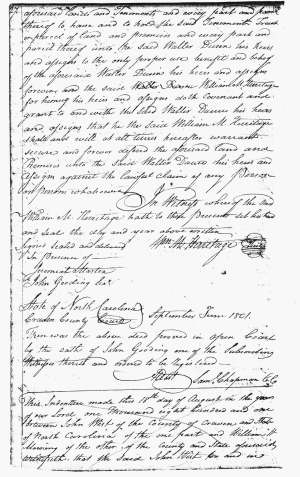 aforesaid Lands and Tenements and every part and parcel
thereof to have and to hold the said Tenements Tract
or parcel of land and premises and every part and
parcel thereof unto the said Walter Duron his heirs
and assigns to the only proper use benefit and behoof
of the aforesaid Walter Duron his heirs and assigns
forever and the said William M. Heritage
for himself his heirs and assigns doth covenant and
grant to and with the said Walter Duron his heirs
and assigns that he the said William M. Heritage
shall and will at all times hereafter warrant
secure and forever defend the aforesaid land and
Premises unto the said Walter Duron his heirs and
assigns against the lawful claim of any Person
or Persons whatsoever In Witness whereof the said
William M. Heritage hath to these Presents set his hand
and seal the day and year above written
Signed sealed and delivered Wm. M. Heritage
In Presence of
John Gooding
State of North Carolina
Craven County September Term 1801.
Then was the above deed proved in open Court
by the oath of John Gooding one of the Subscribing
Witnesses thereto and ordered to be registered
Attest Saml. Chapman
This Indenture made this 18th day of August in the year
of our Lord one Thousand eight hundred and one
between John West of the County of Craven and State
of North Carolina of the one part and William
of the other of the County and State aforesaid
witnesseth that the said John West for and in